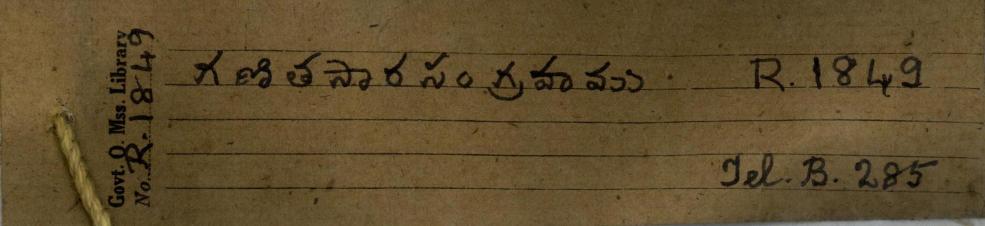 Govt. O. Mss. Library
No. R. 1849
గణితసారసంగ్రహము R. 1849
Tel. B. 285